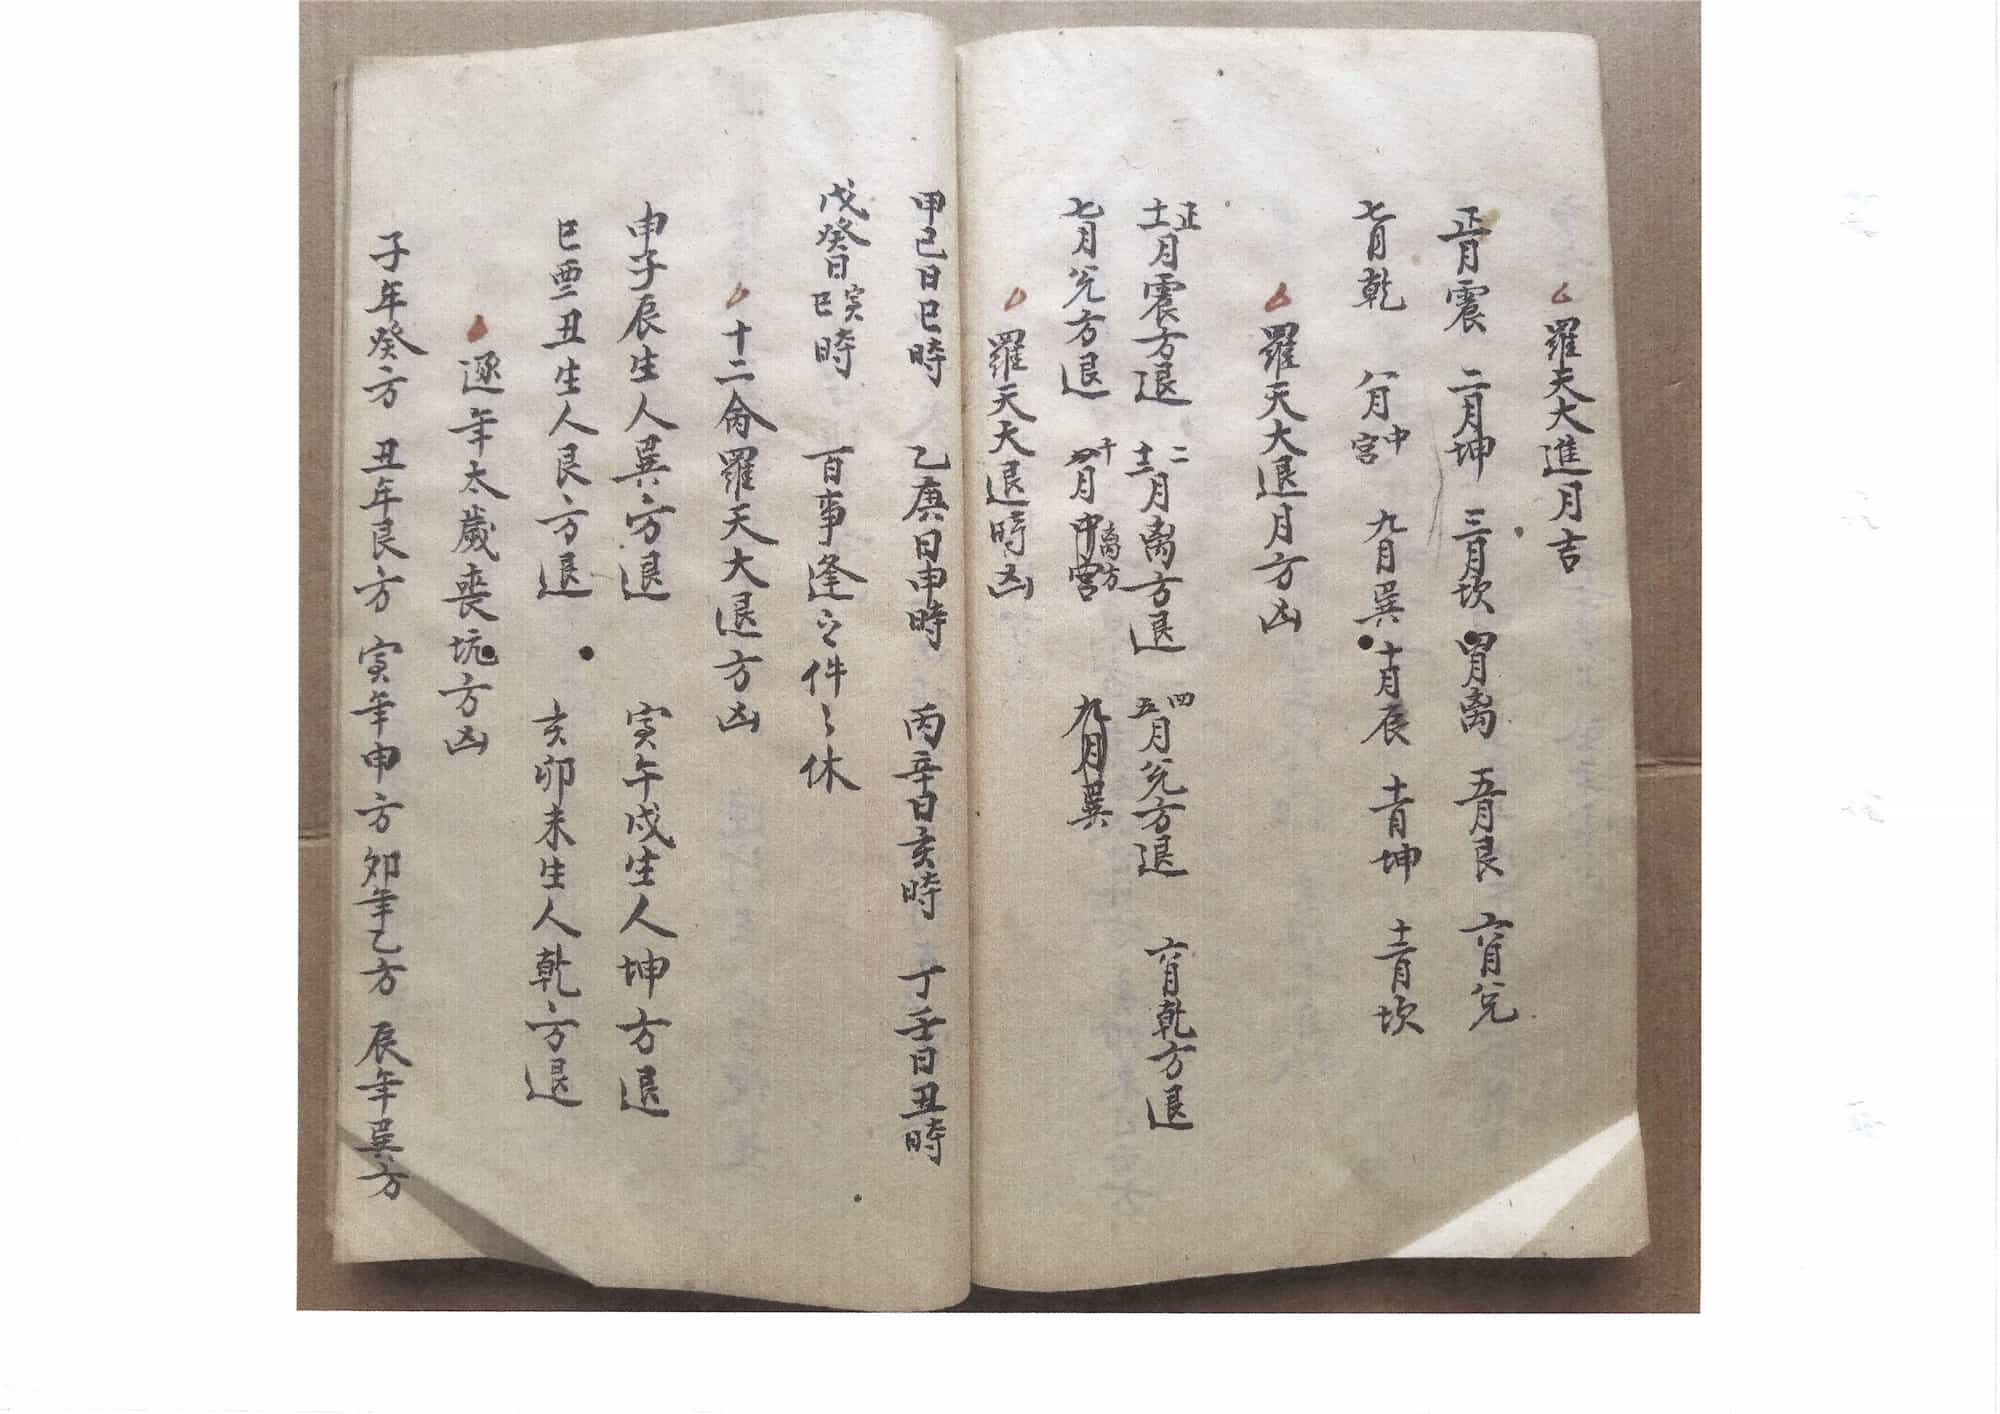 羅天大進月吉
正月震 二月坤 三月坎 四月离 五月艮 六月兌
七月乾 八月中宮 九月巽 十月辰 十一月坤 十二月坎
羅天大退月方凶
正十一月震方退 二十二三月离方退 四五月兌方退 六月乾方退
七月兌方退 十八月中宮离方 九月巽
羅天大退時凶
甲己日巳時 乙庚日申時 丙辛日亥時 丁壬日丑時
戊癸日寅巳時 百事逢之件々休
十二命羅天大退方凶
申子辰生人巽方退 寅午戌生人坤方退
巳酉丑生人艮方退 亥卯未生人乾方退
逐年太歲喪坑方凶
子年癸方 丑年艮方 寅年申方 卯年乙方 辰年巽方